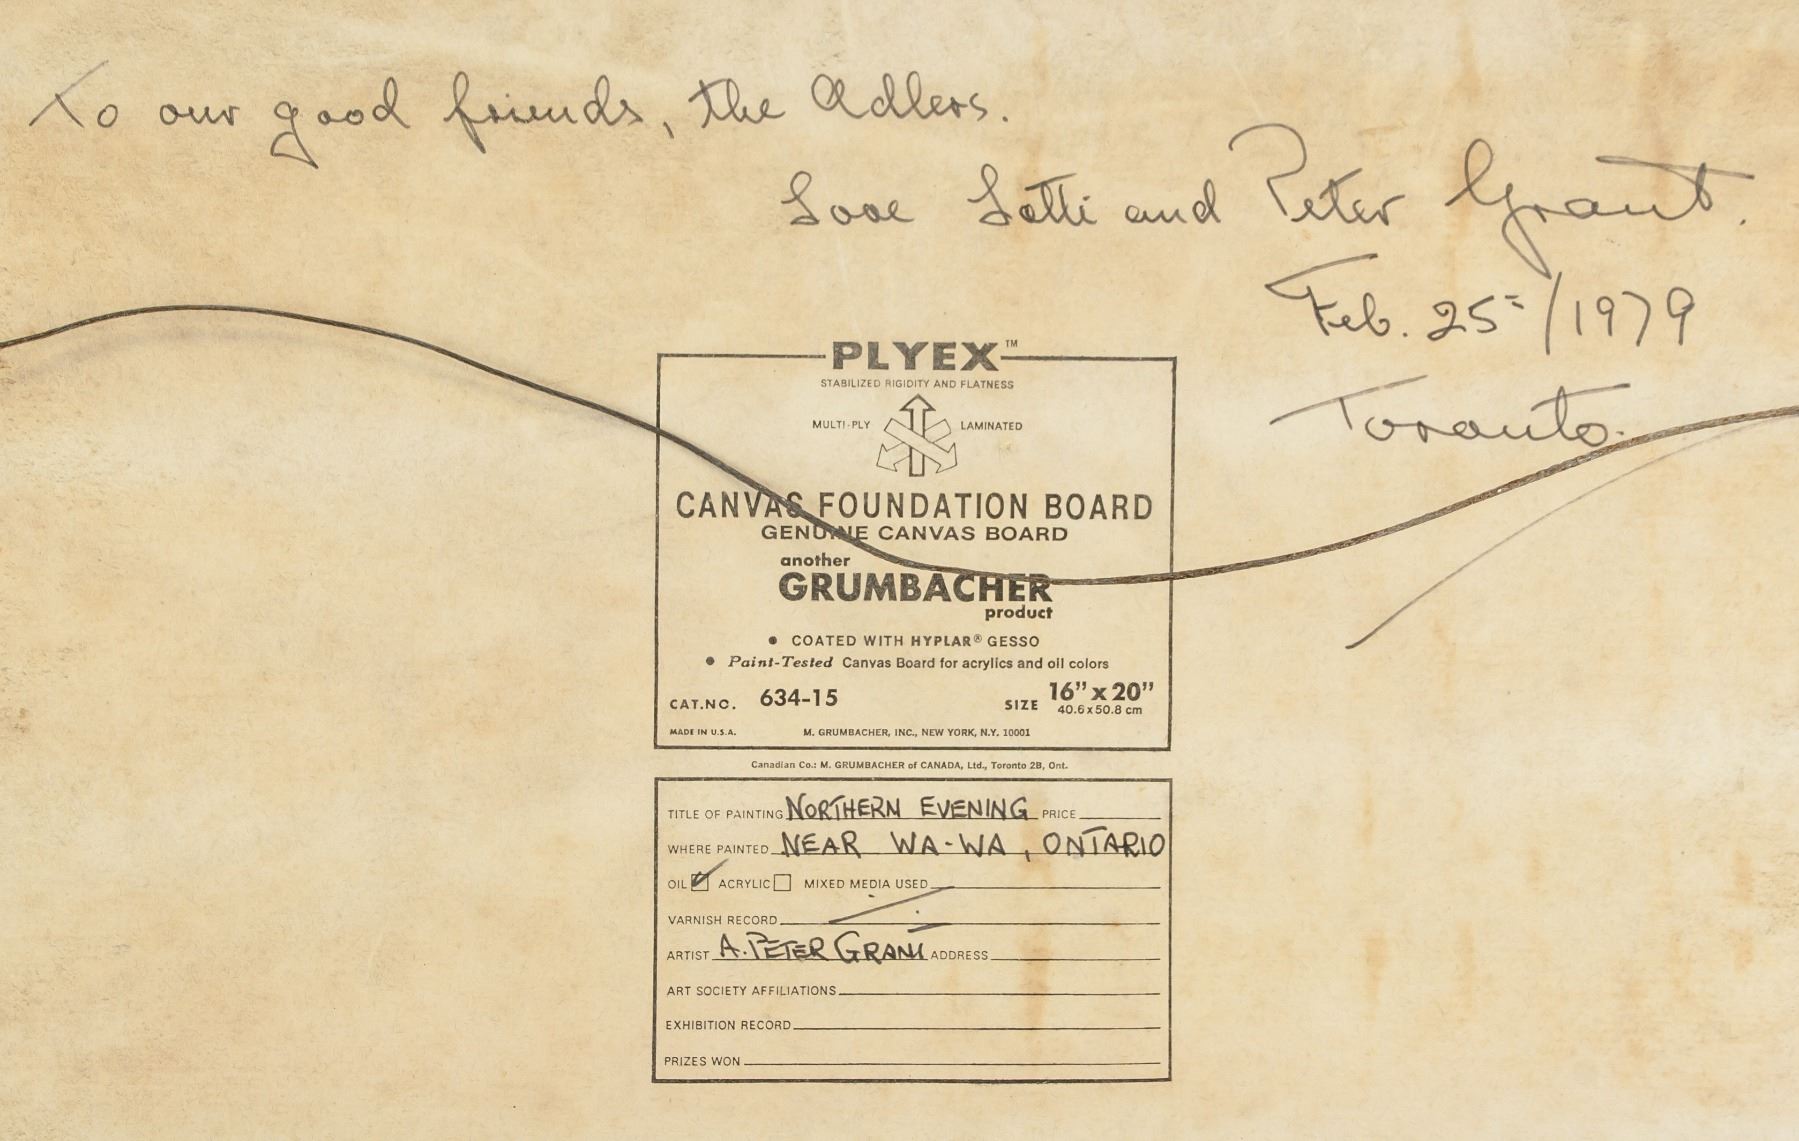 To our good friends, the Adlers.
Love Lotti and Peter Grant.
Feb. 25=/1979
Toronto.
PLYEX™
STABILIZED RIGIDITY AND FLATNESS
MULTI-PLY LAMINATED
CANVAS FOUNDATION BOARD
GENUINE CANVAS BOARD
another
GRUMBACHER
product
• COATED WITH HYPLAR® GESSO
• Paint-Tested Canvas Board for acrylics and oil colors
CAT.NO. 634-15 SIZE 16” x 20”
40.6x50.8 cm
MADE IN U.S.A. M. GRUMBACHER, INC., NEW YORK, N.Y. 10001
Canadian Co.: M. GRUMBACHER of CANADA, Ltd., Toronto 2B, Ont.
TITLE OF PAINTING NORTHERN EVENING PRICE
WHERE PAINTED NEAR WA-WA, ONTARIO
OIL ☑ ACRYLIC ☐ MIXED MEDIA USED
VARNISH RECORD
ARTIST A. PETER GRANT ADDRESS
ART SOCIETY AFFILIATIONS
EXHIBITION RECORD
PRIZES WON